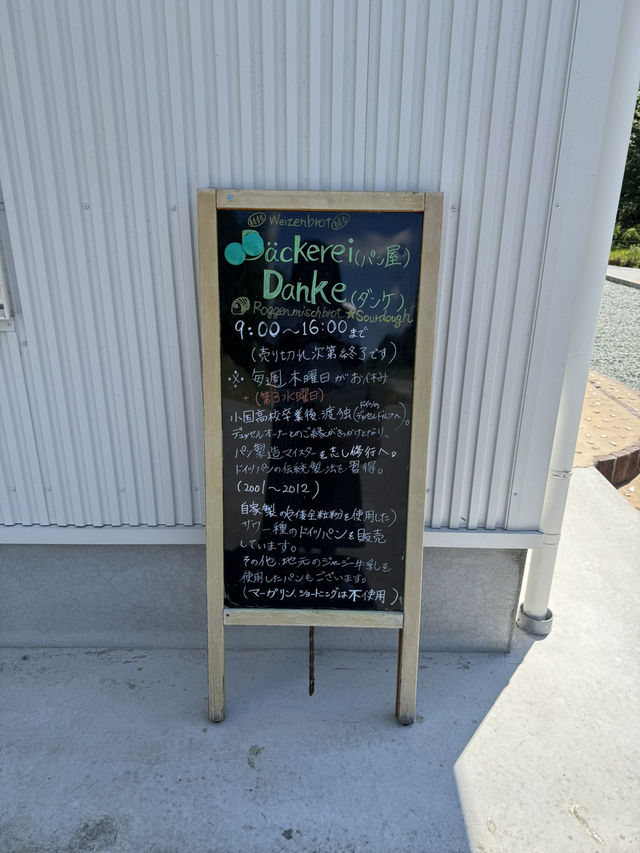 Weizenbrot
Bäckerei(パン屋)
Danke(ダンケ)
Roggenmischbrot ★Sourdough
9:00〜16:00まで
(売り切れ次第終了です)
※ 毎週木曜日がお休み
+(第3水曜日)
小国高校卒業後、渡独(ドイツのデュッセルドルフへ)。
デュッセルオーナーとのご縁がきっかけとなり、
パン製造マイスターを志し修行へ。
ドイツパンの伝統製法を習得。
(2001〜2012)
自家製の全粒粉を使用した
サワー種のドイツパンを販売
しています。
その他、地元のジャージー牛乳を
使用したパンもございます。
(マーガリン、ショートニングは不使用)